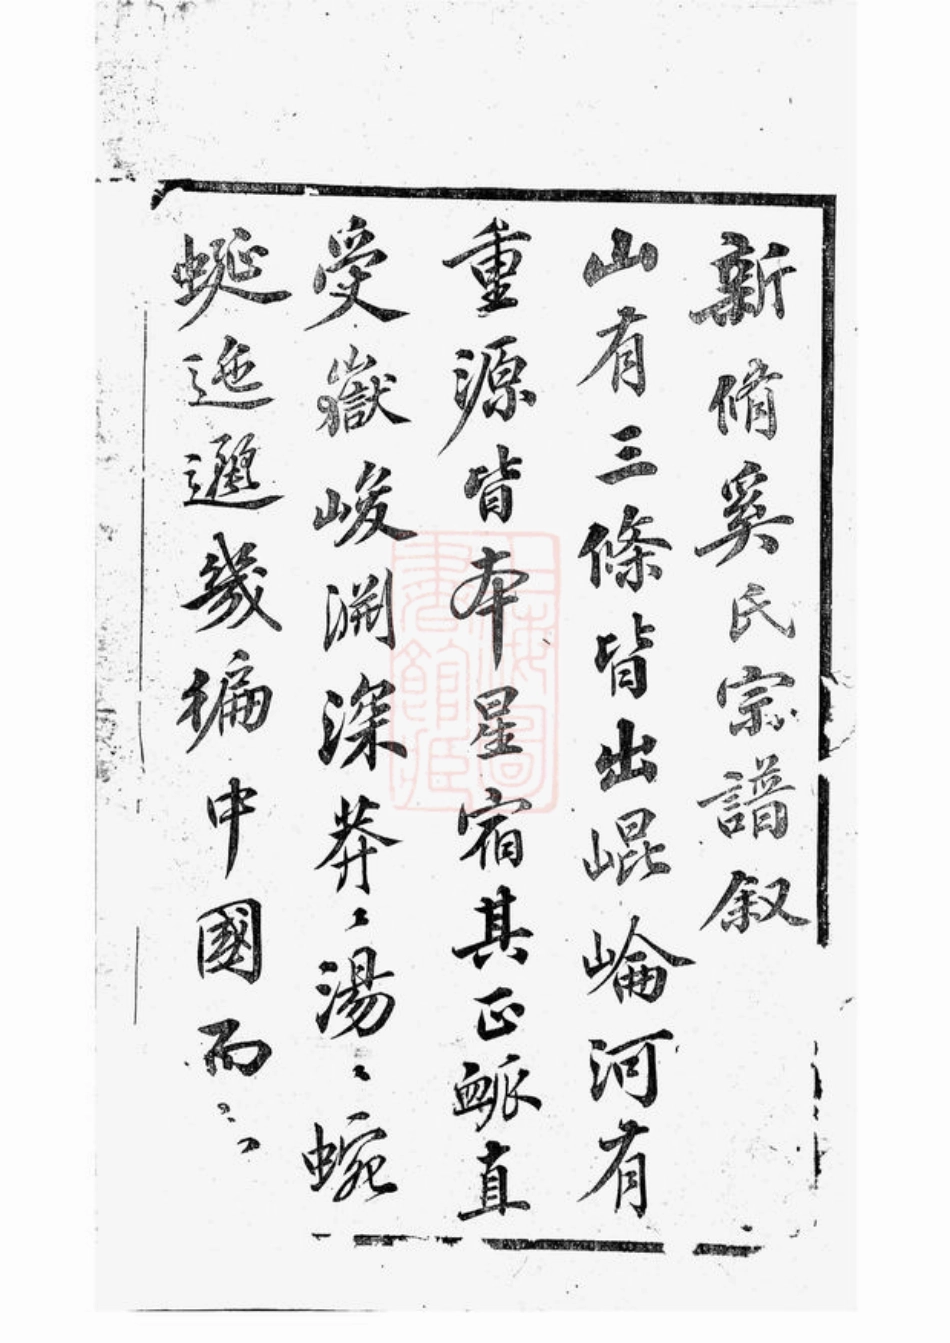 新脩奚氏宗譜叙
山有三條皆出崐崘河有
重源皆本星宿其正脈直
受嶽峻渊深莽〻湯〻蜿
蜒迤邐幾徧中國而
上海圖書館藏